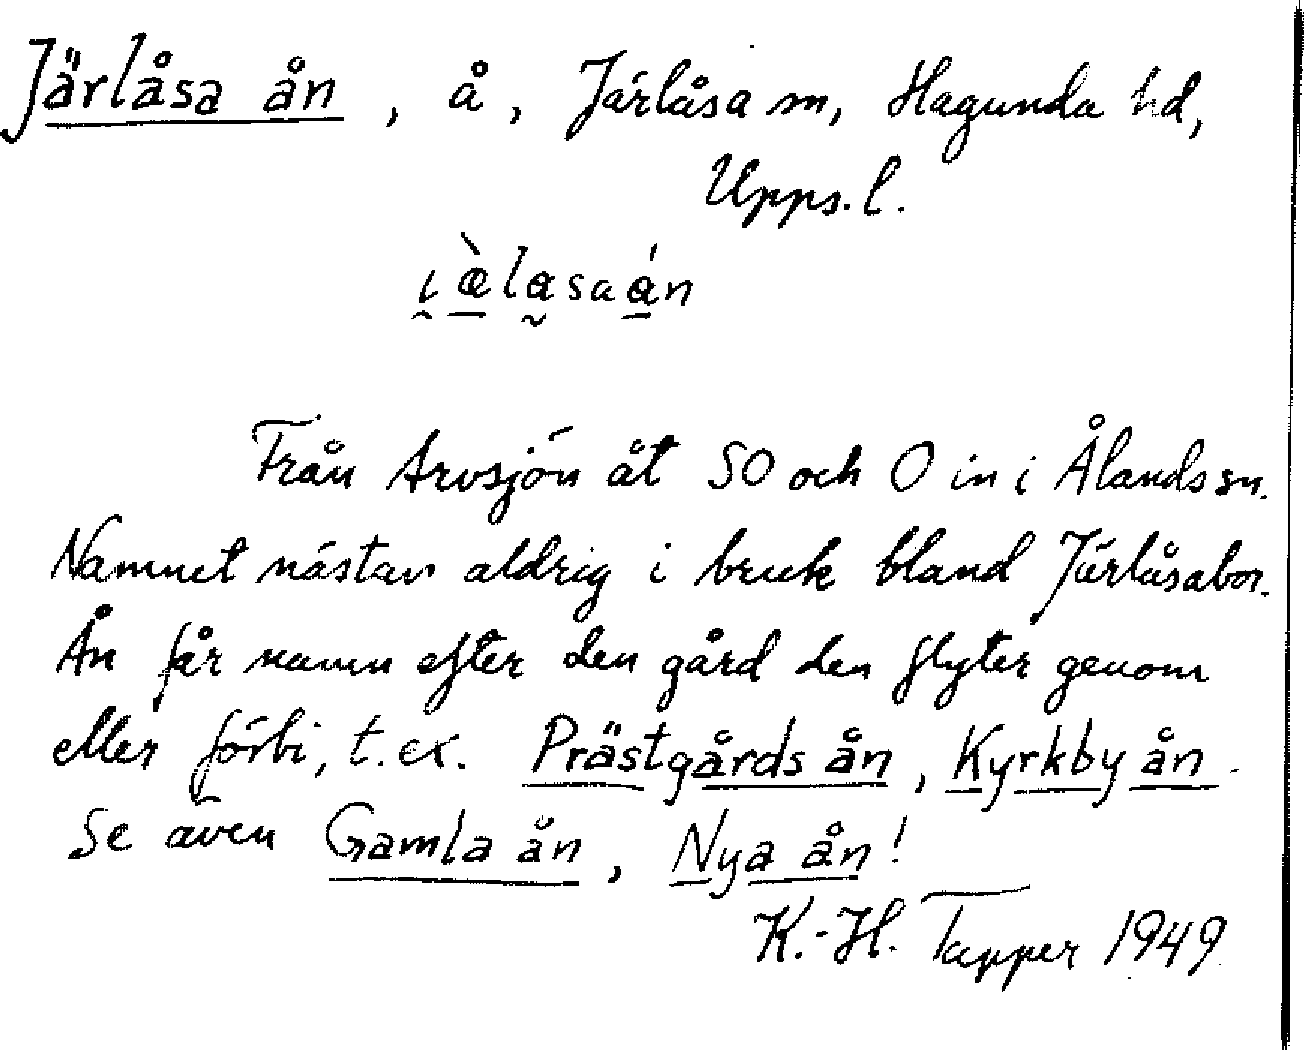 Järlåsa ån, å, Järlåsa sn, Hagunda hd,
Upps. l.
i̯æ̀lasaán
Från Arvsjön åt SO och O in i Ålands sn.
Namnet nästan aldrig i bruk bland Järlåsabor.
Ån får namn efter den gård den flyter genom
eller förbi, t. ex. Prästgårdsån, Kyrkbyån.
Se även Gamla ån, Nya ån!
K.-H. Tapper 1949